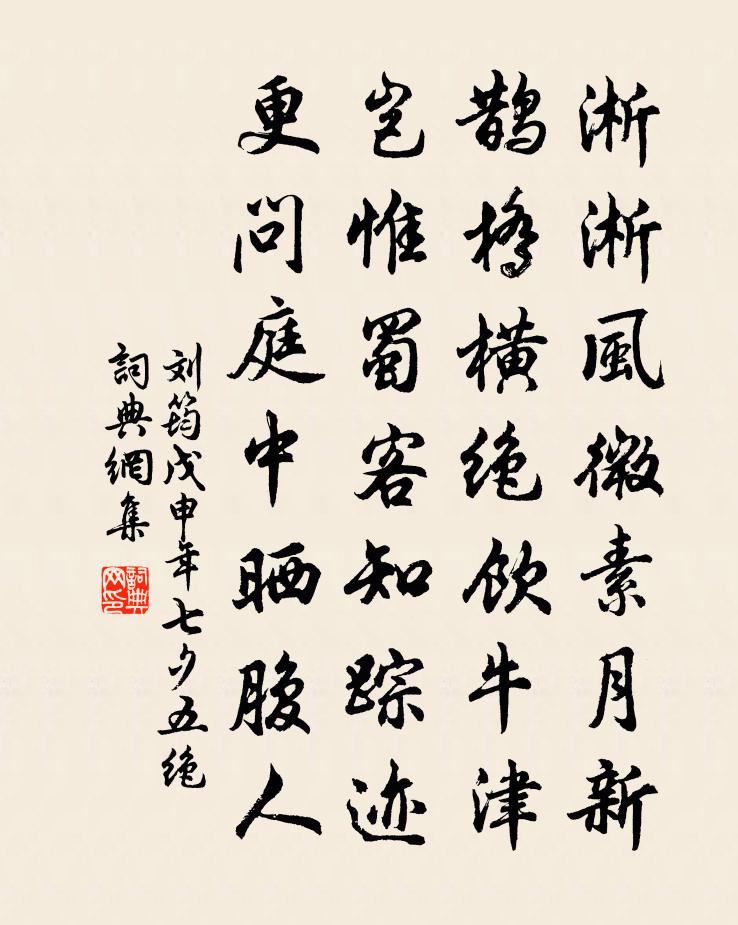 淅淅風微素月新
鹊橋橫绝飲牛津
岂惟蜀客知踪迹
更问庭中晒腹人
刘筠戊申年七夕五绝
詞典網集
詞典网印